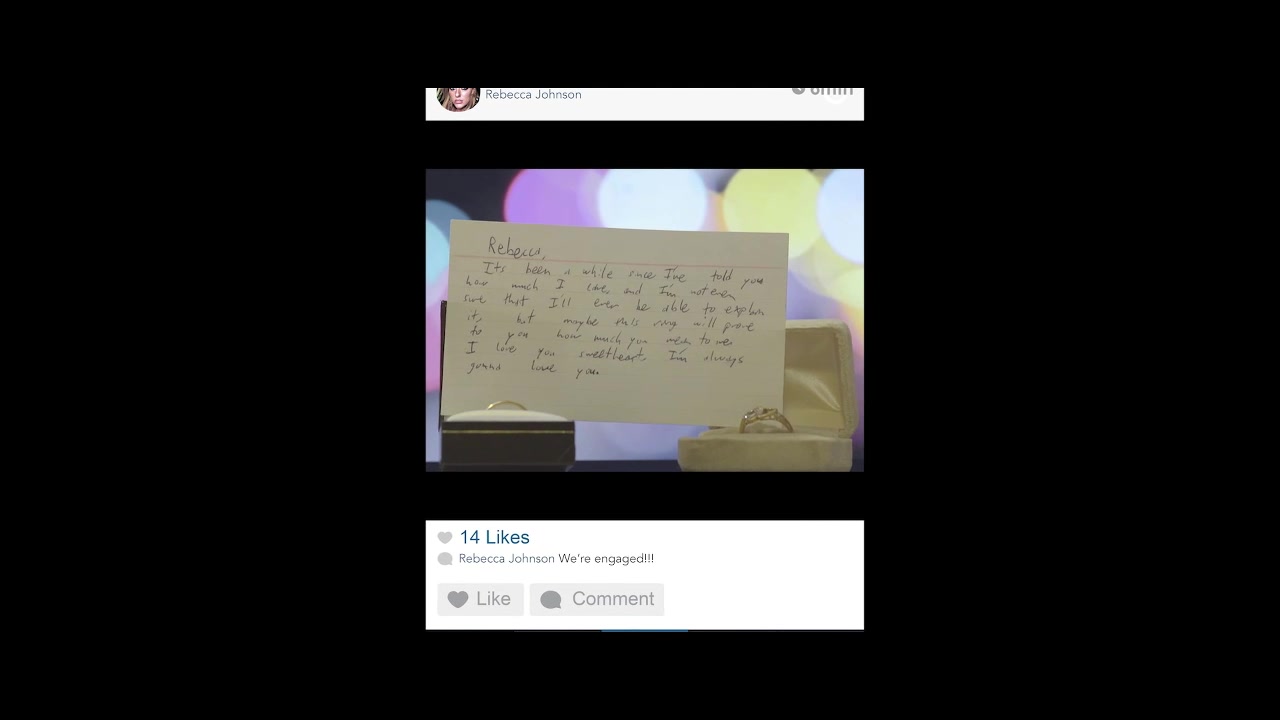 Rebecca Johnson
6min
Rebecca,
Its been a while since I've told you
how much I love, and I'm not even
sure that I'll ever be able to explain
it, but maybe this ring will prove
to you how much you mean to me
I love you sweetheart. I'm always
gonna love you.
14 Likes
Rebecca Johnson We're engaged!!!
Like
Comment